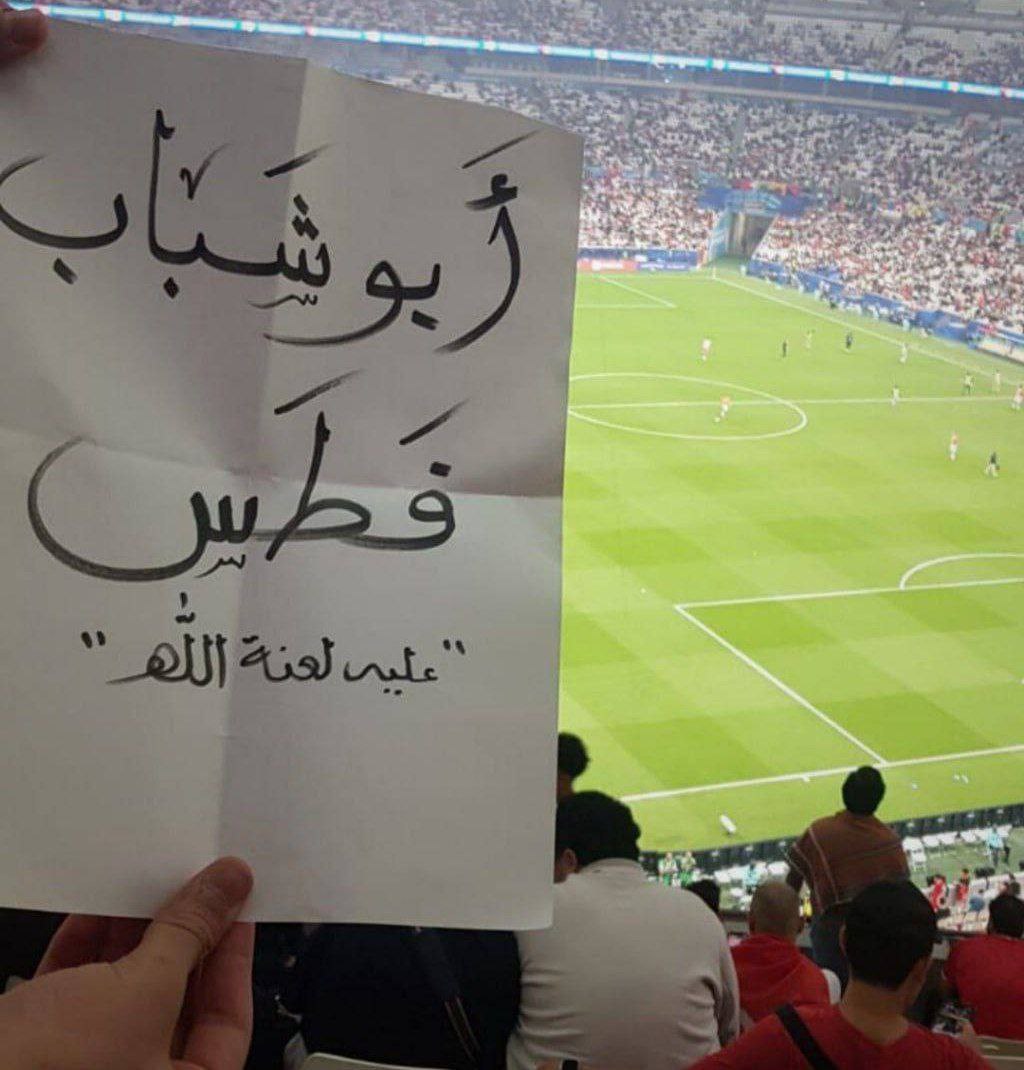 أَبو شَبَاب
فَطَس
"عليه لعنة اللّٰه"